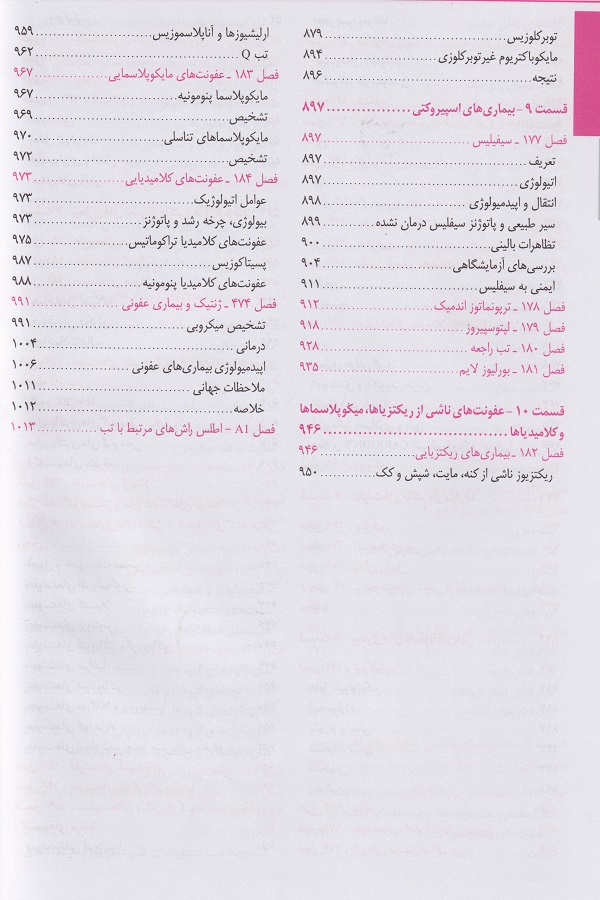 توبرکلوزیس ........ ۸۷۹
مایکوباکتریوم غیرتوبرکلوزی ........ ۸۹۴
نتیجه ........ ۸۹۶
قسمت ۹ - بیماری‌های اسپیروکتی ........ ۸۹۷
فصل ۱۷۷ ـ سیفیلیس ........ ۸۹۷
تعریف ........ ۸۹۷
اتیولوژی ........ ۸۹۷
انتقال و اپیدمیولوژی ........ ۸۹۸
سیر طبیعی و پاتوژنز سیفلیس درمان نشده ........ ۸۹۹
تظاهرات بالینی ........ ۹۰۰
بررسی‌های آزمایشگاهی ........ ۹۰۴
ایمنی به سیفلیس ........ ۹۱۱
فصل ۱۷۸ ـ ترپونماتوز اندمیک ........ ۹۱۲
فصل ۱۷۹ ـ لپتوسپیروز ........ ۹۱۸
فصل ۱۸۰ ـ تب راجعه ........ ۹۲۸
فصل ۱۸۱ ـ بورلیوز لایم ........ ۹۳۵
قسمت ۱۰ - عفونت‌های ناشی از ریکتزیاها، میکوپلاسماها
و کلامیدیاها ........ ۹۴۶
فصل ۱۸۲ ـ بیماری‌های ریکتزیایی ........ ۹۴۶
ریکتزیوز ناشی از کنه، مایت، شپش و کک ........ ۹۵۰
ارلیشیوزها و آناپلاسموزیس ........ ۹۵۹
تب Q ........ ۹۶۲
فصل ۱۸۳ ـ عفونت‌های مایکوپلاسمایی ........ ۹۶۷
مایکوپلاسما پنومونیه ........ ۹۶۷
تشخیص ........ ۹۶۹
مایکوپلاسماهای تناسلی ........ ۹۷۰
تشخیص ........ ۹۷۲
فصل ۱۸۴ ـ عفونت‌های کلامیدیایی ........ ۹۷۳
عوامل اتیولوژیک ........ ۹۷۳
بیولوژی، چرخه رشد و پاتوژنز ........ ۹۷۳
عفونت‌های کلامیدیا تراکوماتیس ........ ۹۷۵
پسیتاکوزیس ........ ۹۸۷
عفونت‌های کلامیدیا پنومونیه ........ ۹۸۸
فصل ۴۷۴ ـ ژنتیک و بیماری عفونی ........ ۹۹۱
تشخیص میکروبی ........ ۹۹۱
درمانی ........ ۱۰۰۴
اپیدمیولوژی بیماری‌های عفونی ........ ۱۰۰۶
ملاحظات جهانی ........ ۱۰۱۱
خلاصه ........ ۱۰۱۲
فصل A1 - اطلس راش‌های مرتبط با تب ........ ۱۰۱۳